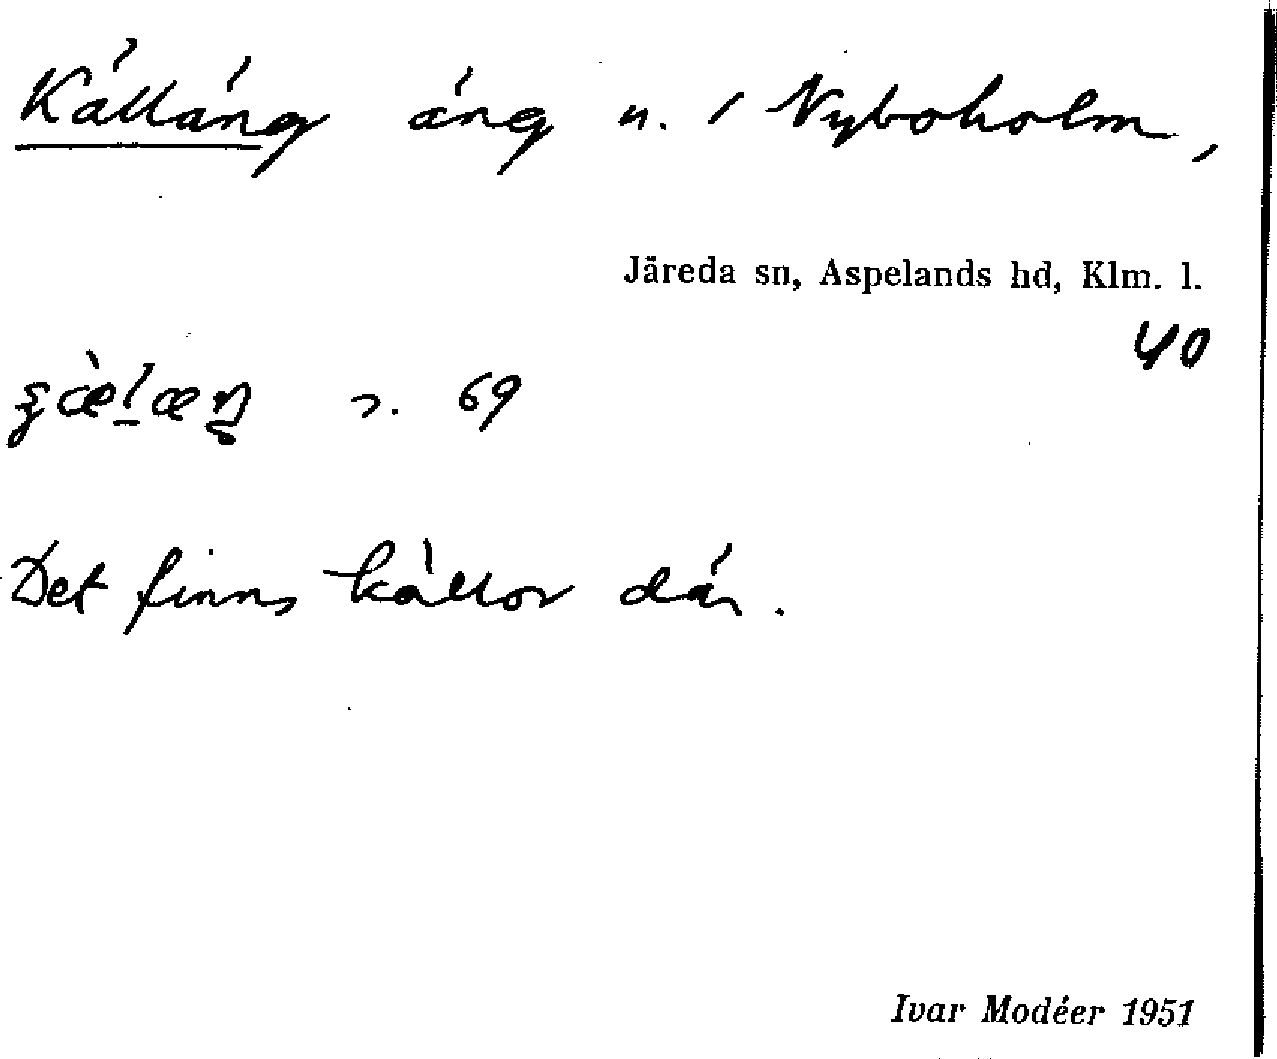 Källäng äng n. / Nyboholm,
Järeda sn, Aspelands hd, Klm. l.
40
69
Det finns källor där.
Ivar Modéer 1951